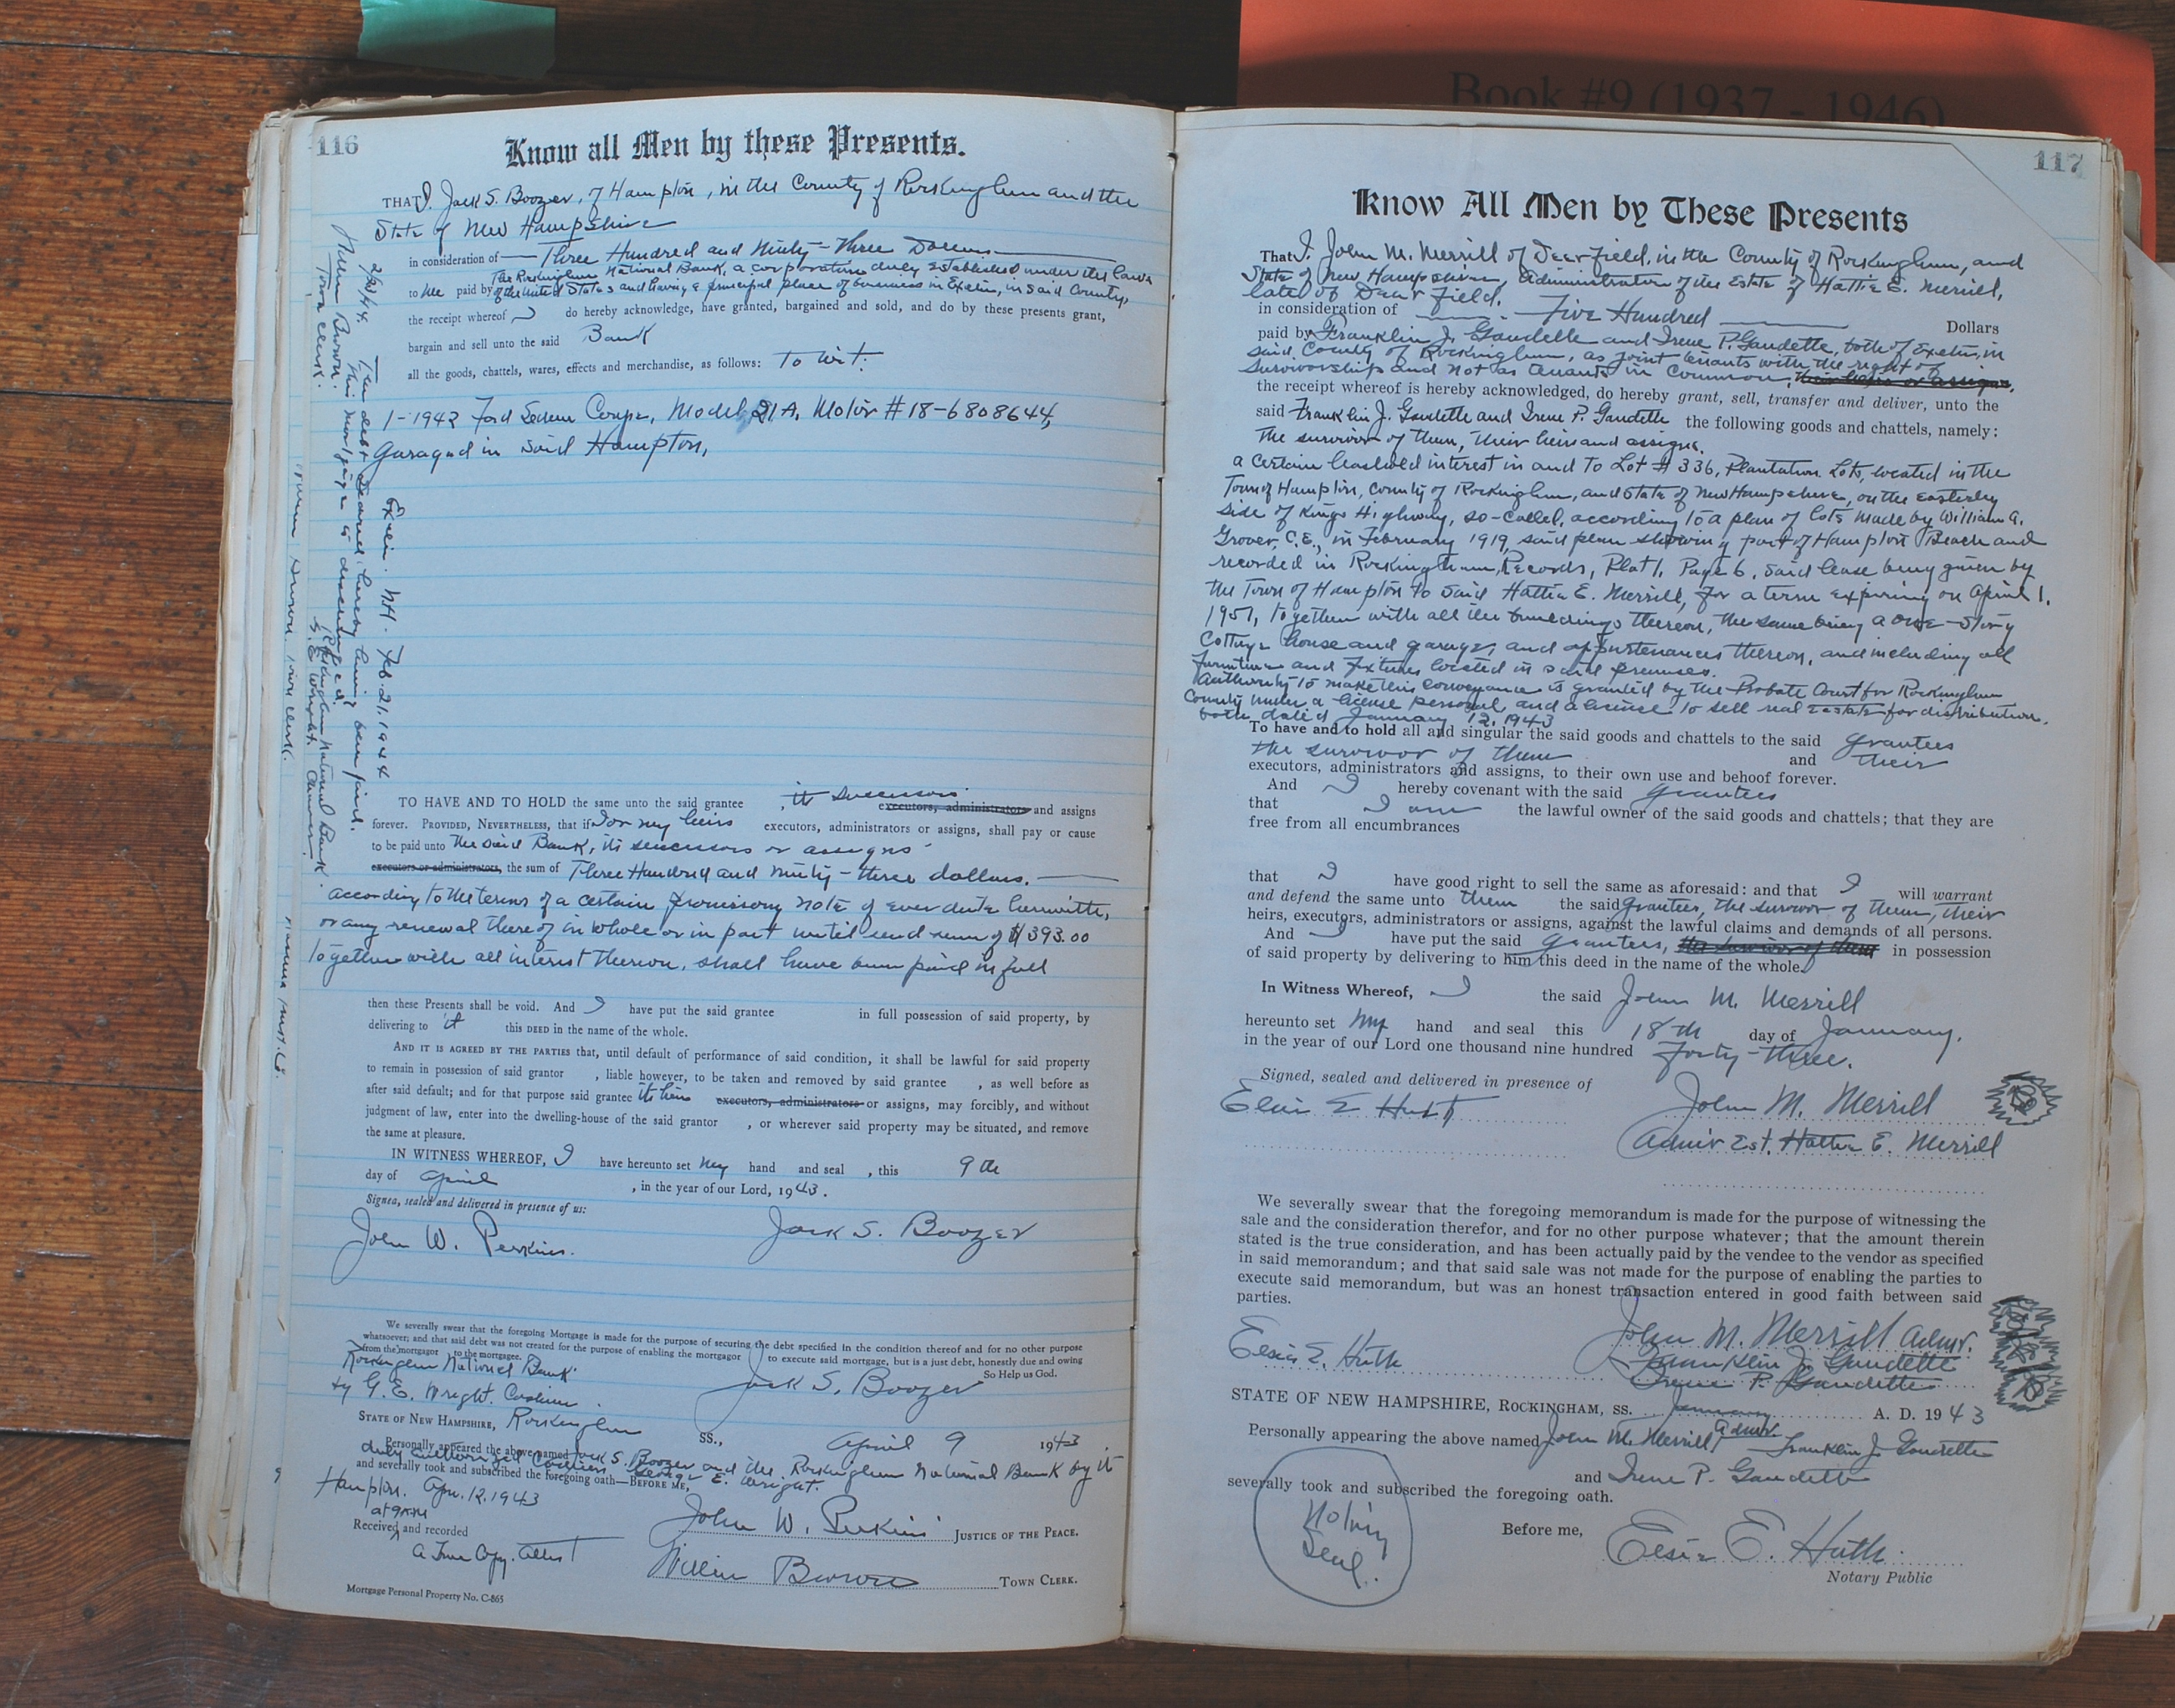 Book #9 (1937 - 1946)
116
Know all Men by these Presents.
THAT I, Jack S. Boozer, of Hampton, in the County of Rockingham and the
State of New Hampshire
in consideration of — Three Hundred and Ninety-Three Dollars
to me paid by The Rockingham National Bank, a corporation duly established under the laws
of the United States and having a principal place of business in Exeter, in said County,
the receipt whereof I do hereby acknowledge, have granted, bargained and sold, and do by these presents grant,
bargain and sell unto the said Bank
all the goods, chattels, wares, effects and merchandise, as follows: To wit:
1-1942 Ford Sedan Coupe, Model 21A, Motor #18-6808644,
Garaged in said Hampton,
TO HAVE AND TO HOLD the same unto the said grantee, its successors executors, administrators and assigns
forever. PROVIDED, NEVERTHELESS, that if I or my heirs executors, administrators or assigns, shall pay or cause
to be paid unto the said Bank, its successors or assigns
executors or administrators, the sum of Three Hundred and Ninety-three dollars.
according to the terms of a certain promissory note of even date herewith,
or any renewal thereof in whole or in part until said sum of $393.00
together with all interest thereon, shall have been paid in full
then these Presents shall be void. And I have put the said grantee in full possession of said property, by
delivering to it this DEED in the name of the whole.
AND IT IS AGREED BY THE PARTIES that, until default of performance of said condition, it shall be lawful for said property
to remain in possession of said grantor , liable however, to be taken and removed by said grantee , as well before as
after said default; and for that purpose said grantee its heirs executors, administrators or assigns, may forcibly, and without
judgment of law, enter into the dwelling-house of the said grantor , or wherever said property may be situated, and remove
the same at pleasure.
IN WITNESS WHEREOF, I have hereunto set my hand and seal , this 9th
day of April , in the year of our Lord, 1943.
Signed, sealed and delivered in presence of us:
John W. Perkins. Jack S. Boozer
We severally swear that the foregoing Mortgage is made for the purpose of securing the debt specified in the condition thereof and for no other purpose
whatsoever; and that said debt was not created for the purpose of enabling the mortgagor to execute said mortgage, but is a just debt, honestly due and owing
from the mortgagor to the mortgagee. So Help us God.
Rockingham National Bank
by G. E. Wright. Cashier. Jack S. Boozer
STATE OF NEW HAMPSHIRE, Rockingham SS., April 9 1943
Personally appeared the above named Jack S. Boozer and the Rockingham National Bank by it
duly authorized Cashier George E. Wright.
and severally took and subscribed the foregoing oath—BEFORE ME,
Hampton. Apr. 12, 1943
at 9 AM
Received and recorded John W. Perkins JUSTICE OF THE PEACE.
A True Copy. Attest William Brown TOWN CLERK.
Mortgage Personal Property No. C-865
Exeter. NH. Feb. 21, 1944
The debt secured hereby having been paid.
this mortgage is discharged.
Rockingham National Bank
G. E. Wright. Cashier.
2/21/44.
William Brown.
Town Clerk.
117
Know All Men by These Presents
That I, John M. Merrill of Deerfield, in the County of Rockingham, and
State of New Hampshire, Administrator of the Estate of Hattie E. Merrill,
late of Deerfield.
in consideration of Five Hundred Dollars
paid by Franklin J. Gaudette and Irene P. Gaudette, both of Exeter, in
said County of Rockingham, as joint tenants with the right of
survivorship and not as tenants in common, their heirs or assigns,
the receipt whereof is hereby acknowledged, do hereby grant, sell, transfer and deliver, unto the
said Franklin J. Gaudette and Irene P. Gaudette the following goods and chattels, namely:
the survivor of them, their heirs and assigns.
a certain leasehold interest in and to Lot # 336, Plantation Lots, located in the
Town of Hampton, County of Rockingham, and State of New Hampshire, on the easterly
side of Kings Highway, so-called, according to a plan of lots made by William A.
Grover, C.E., in February 1919, said plan showing part of Hampton Beach and
recorded in Rockingham Records, Plat 1, Page 6, said lease being given by
the Town of Hampton to said Hattie E. Merrill, for a term expiring on April 1,
1951, together with all the buildings thereon, the same being a one-story
cottage house and garage, and appurtenances thereon, and including all
furniture and fixtures located in said premises.
Authority to make this conveyance is granted by the Probate Court for Rockingham
County under a license personal and a license to sell real estate for distribution.
both dated January 12, 1943
To have and to hold all and singular the said goods and chattels to the said grantees
the survivor of them and their
executors, administrators and assigns, to their own use and behoof forever.
And I hereby covenant with the said grantees
that I am the lawful owner of the said goods and chattels; that they are
free from all encumbrances
that I have good right to sell the same as aforesaid: and that I will warrant
and defend the same unto them the said grantees, the survivor of them, their
heirs, executors, administrators or assigns, against the lawful claims and demands of all persons.
And I have put the said grantees, the survivor of them in possession
of said property by delivering to him this deed in the name of the whole.
In Witness Whereof, I the said John M. Merrill
hereunto set my hand and seal this 18th day of January,
in the year of our Lord one thousand nine hundred forty-three.
Signed, sealed and delivered in presence of
Elsie E Huth John M. Merrill
Admr Est. Hattie E. Merrill
We severally swear that the foregoing memorandum is made for the purpose of witnessing the
sale and the consideration therefor, and for no other purpose whatever; that the amount therein
stated is the true consideration, and has been actually paid by the vendee to the vendor as specified
in said memorandum; and that said sale was not made for the purpose of enabling the parties to
execute said memorandum, but was an honest transaction entered in good faith between said
parties.
Elsie E. Huth John M. Merrill Admr.
Franklin J. Gaudette
Irene P. Gaudette
STATE OF NEW HAMPSHIRE, ROCKINGHAM, SS. January A. D. 1943
Personally appearing the above named John M. Merrill Admr. Franklin J. Gaudette
and Irene P. Gaudette
severally took and subscribed the foregoing oath.
Notary
Seal.
Before me, Elsie E. Huth.
Notary Public